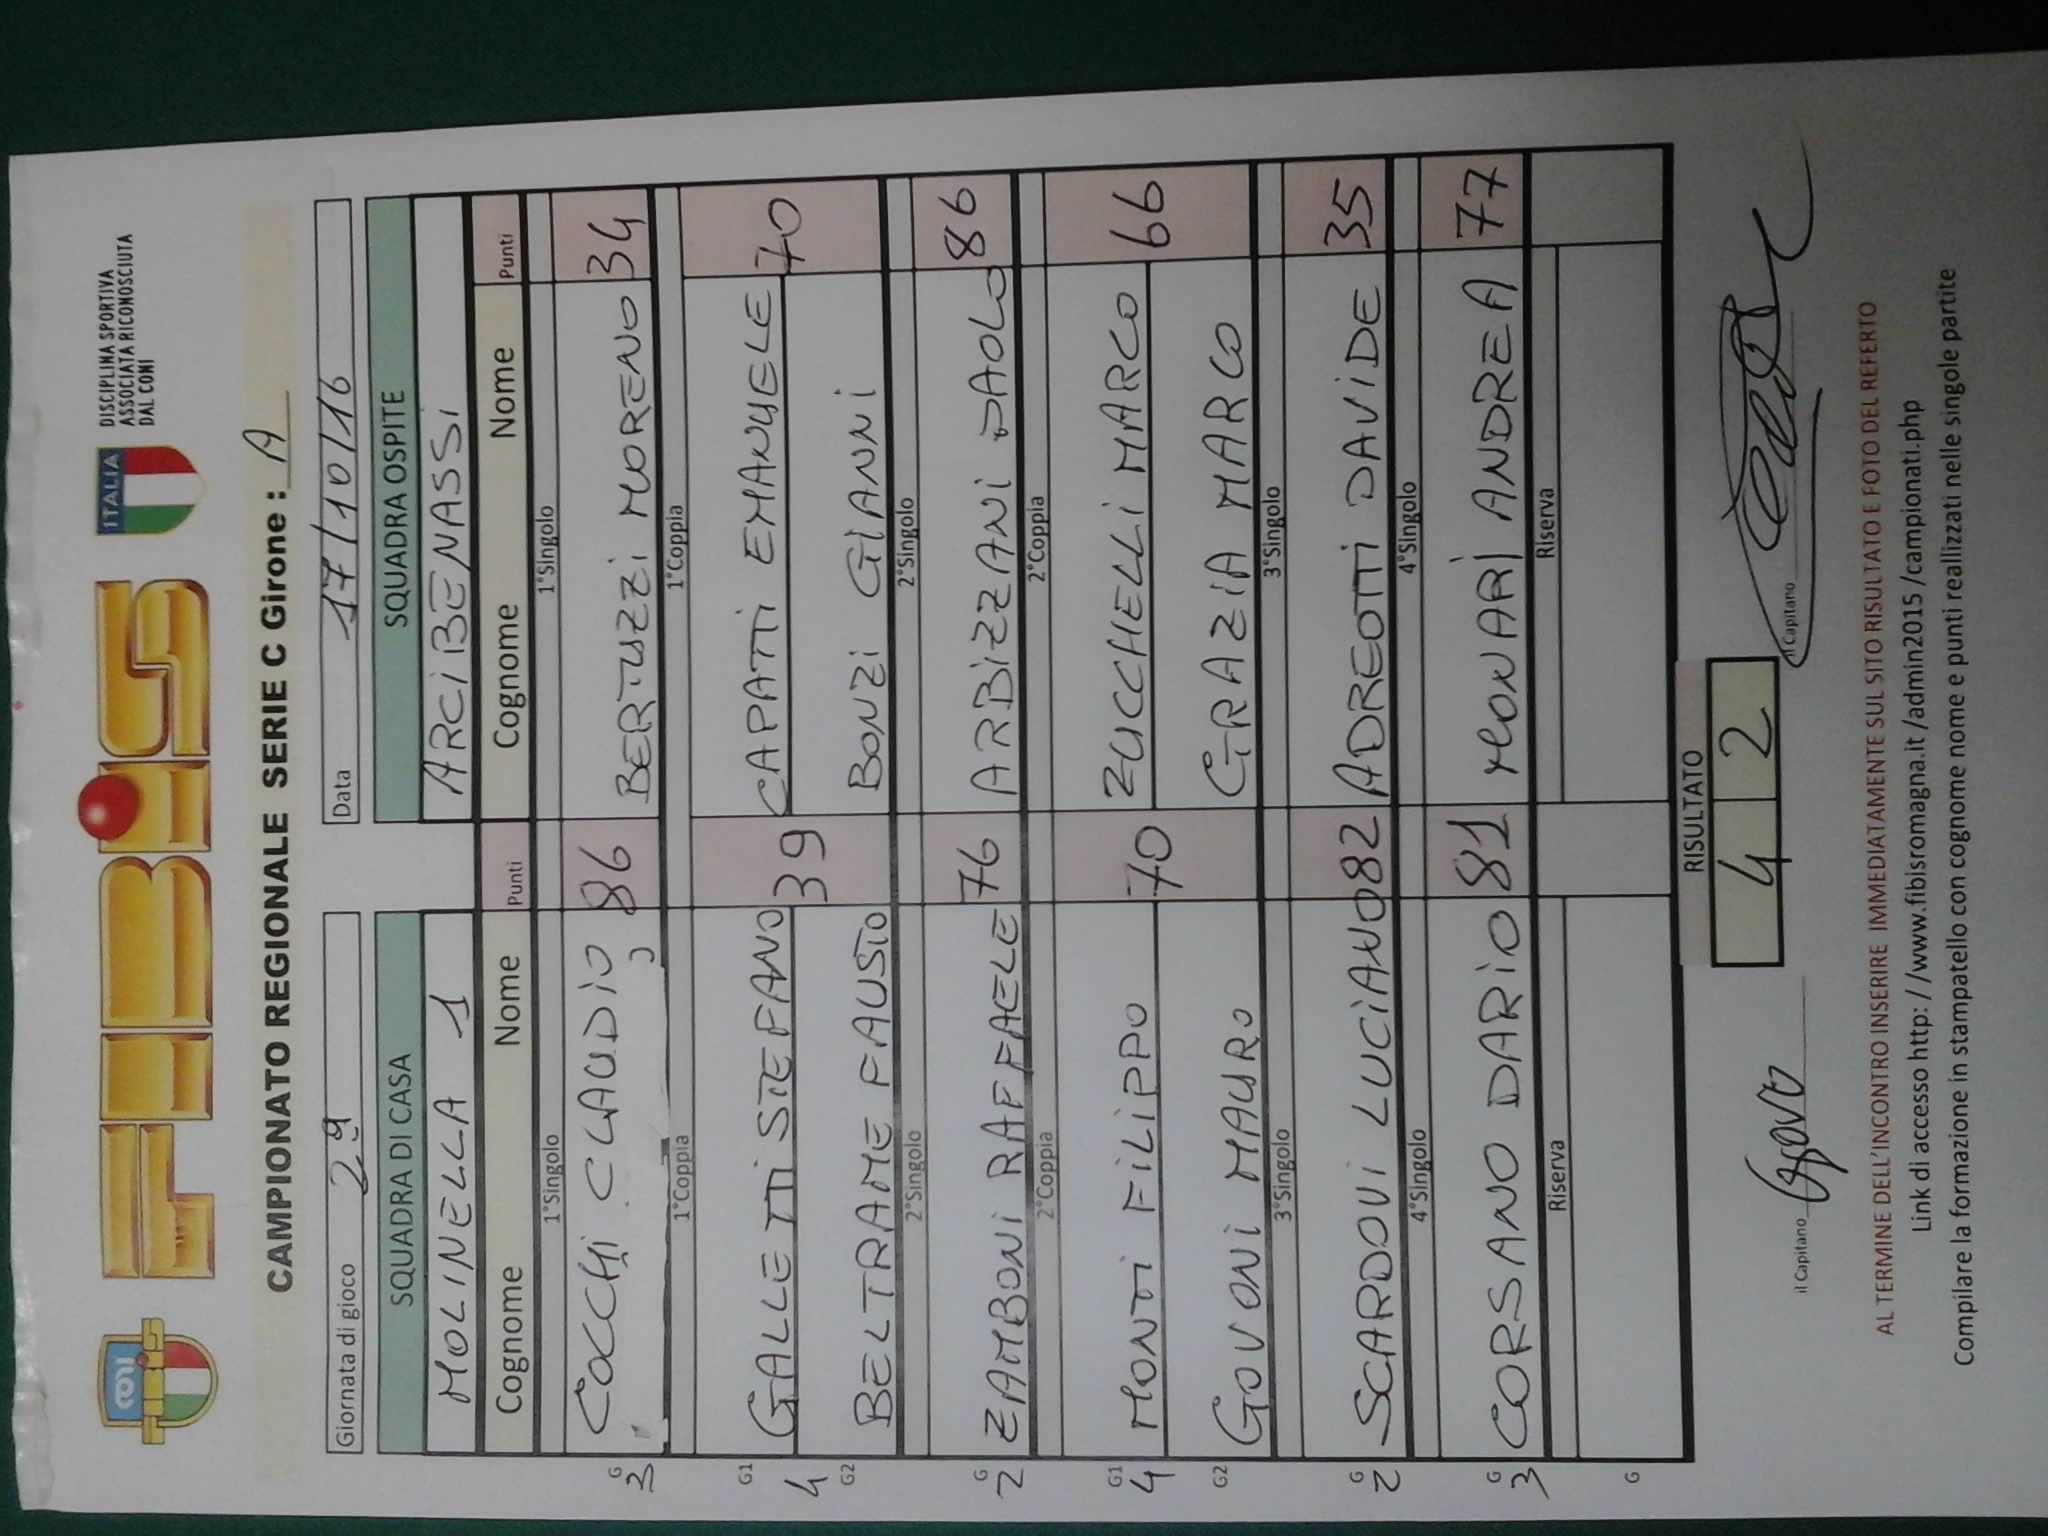 FIBIS
ITALIA
DISCIPLINA SPORTIVA
ASSOCIATA RICONOSCIUTA
DAL CONI
CAMPIONATO REGIONALE SERIE C Girone : A
Giornata di gioco 2 9 Data 17/10/16
SQUADRA DI CASA SQUADRA OSPITE
MOLINELLA 1 ARCIBENASSI
Cognome Nome Punti Cognome Nome Punti
1°Singolo 1°Singolo
G 3 COCCHI CLAUDIO 86 BERTUZZI MORENO 34
1°Coppia 1°Coppia
G1 GALLETTI STEFANO CAPATTI EMANUELE
4 39 70
G2 BELTRAME FAUSTO BONZI GIANNI
2°Singolo 2°Singolo
G 2 ZAMBONI RAFFAELE 76 ARBIZZANI PAOLO 86
2°Coppia 2°Coppia
G1 MONTI FILIPPO ZUCCHELLI MARCO
4 70 66
G2 GOVONI MAURO GRAZIA MARCO
3°Singolo 3°Singolo
G 2 SCARDOVI LUCIANO 82 ADREOTTI DAVIDE 35
4°Singolo 4°Singolo
G 3 CORSANO DARIO 81 MONARI ANDREA 77
Riserva Riserva
G
RISULTATO
4 2
il Capitano il Capitano
AL TERMINE DELL'INCONTRO INSERIRE IMMEDIATAMENTE SUL SITO RISULTATO E FOTO DEL REFERTO
Link di accesso http: //www.fibisromagna.it /admin2015 /campionati.php
Compilare la formazione in stampatello con cognome nome e punti reallizzati nelle singole partite